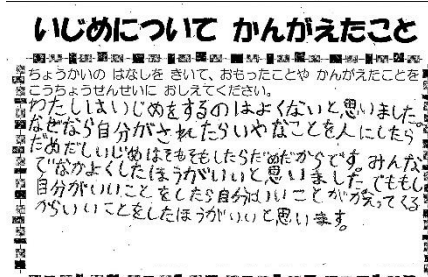 いじめについて かんがえたこと
ちょうかいの はなしを きいて、おもったことや かんがえたことを
こうちょうせんせいに おしえてください。
わたしはいじめをするのはよくないと思いました。
なぜなら自分がされたらいやなことを人にしたら
だめだしいじめはそもそもしたらだめだからです。みんな
でなかよくしたほうがいいと思いました。でももし
自分がいいことをしたら自分にいいことがかえってくる
からいいことをしたほうがいいと思います。